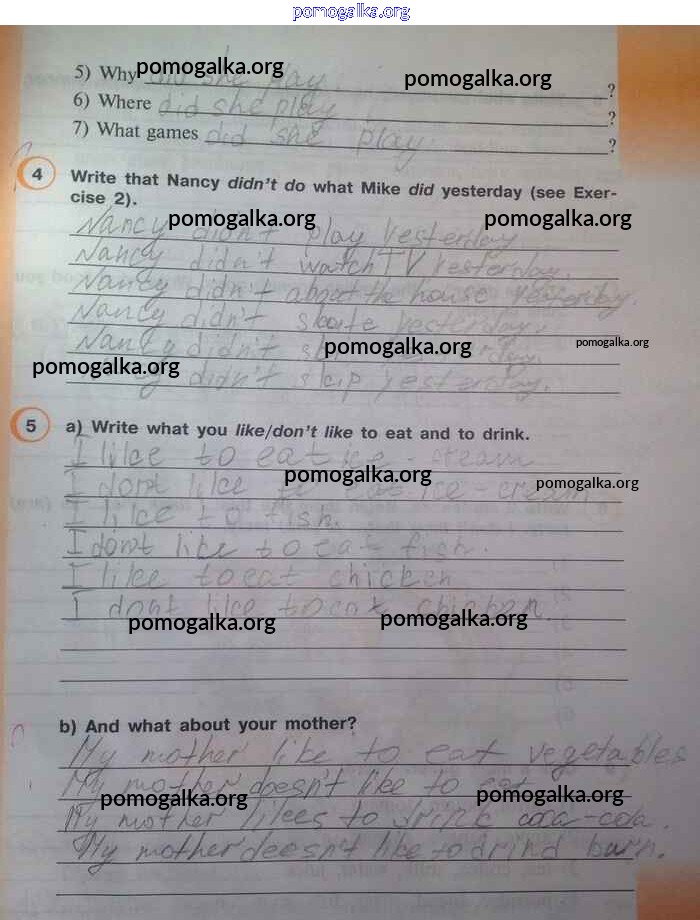 pomogalka.org
5) Why did she play. ?
pomogalka.org pomogalka.org
6) Where did she play ?
7) What games did she play. ?
4 Write that Nancy didn't do what Mike did yesterday (see Exer-
cise 2).
Nancy didn't play yesterday
pomogalka.org pomogalka.org
Nancy didn't watch TV yesterday.
Nancy didn't about the house yesterday.
Nancy didn't skate yesterday.
Nancy didn't
pomogalka.org pomogalka.org
pomogalka.org
didn't skip yesterday.
5 a) Write what you like/don't like to eat and to drink.
I like to eat ice-cream
pomogalka.org pomogalka.org
I dont like to eat ice-cream.
I like to fish.
I dont like to eat fish.
I like to eat chicken
I dont like to eat
pomogalka.org pomogalka.org
b) And what about your mother?
My mother like to eat vegetables
My mother doesn't like to eat
pomogalka.org pomogalka.org
My mother likees to drink coca-cola.
My mother deesn't like to drind